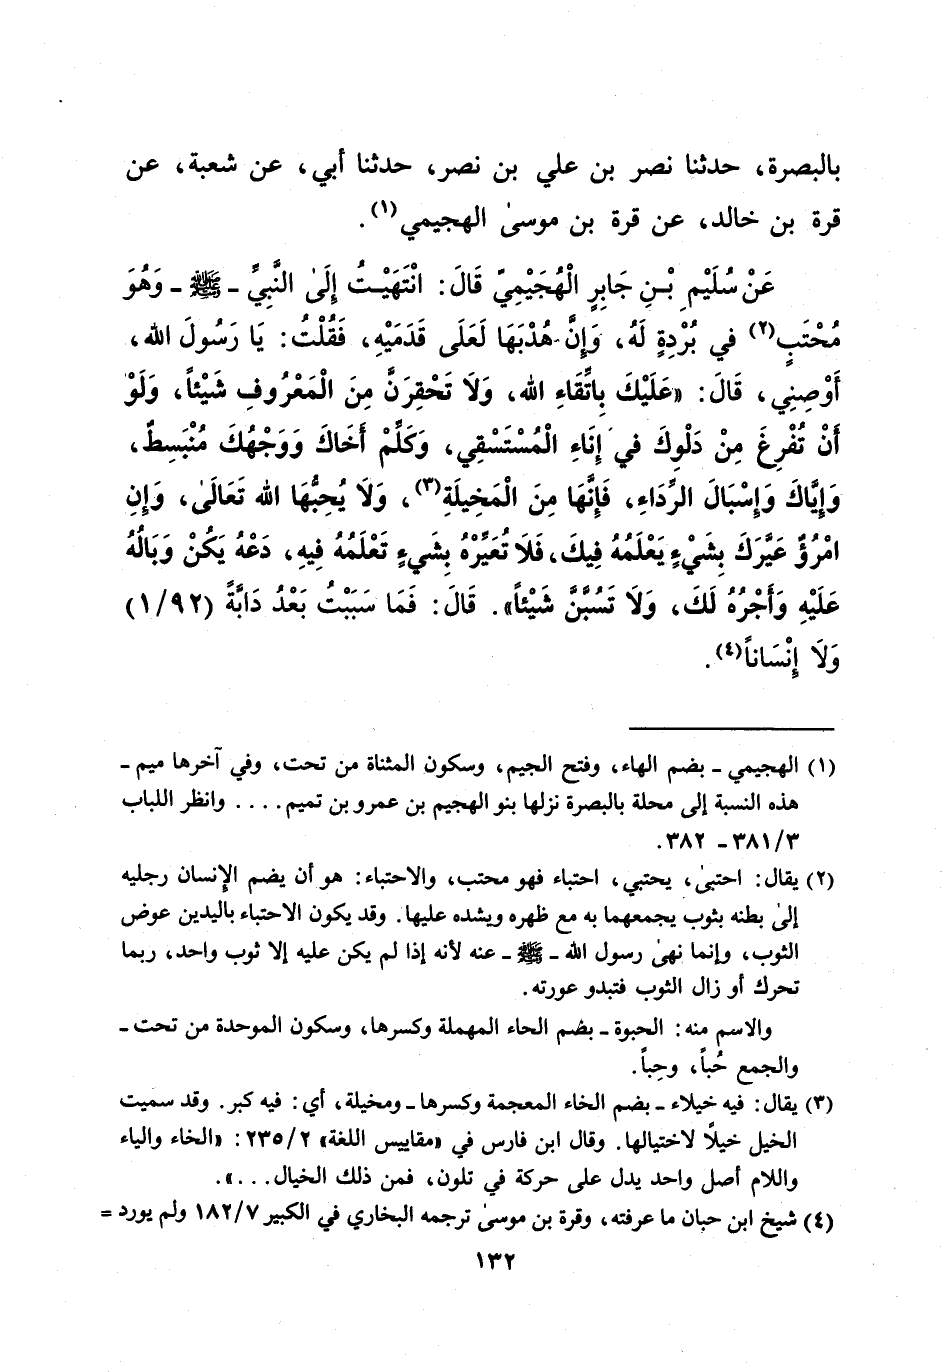 بالبصرة، حدثنا نصر بن علي بن نصر، حدثنا أبي، عن شعبة، عن
قرة بن خالد، عن قرة بن موسىٰ الهجيمي(١).
عَنْ سُلَيْمِ بْنِ جَابِرٍ الْهُجَيْمِيِّ قَالَ: انْتَهَيْتُ إِلَىٰ النَّبِيِّ ـ ﷺ ـ وَهُوَ
مُحْتَبٍ(٢) في بُرْدِةٍ لَهُ، وَإِنَّ هُدْبَهَا لَعَلَى قَدَمَيْهِ، فَقُلْتُ: يَا رَسُولَ الله،
أَوْصِنِي، قَالَ: «عَلَيْكَ بِاتِّقَاءِ الله، وَلَا تَحْقِرَنَّ مِنَ الْمَعْرُوفِ شَيْئاً، وَلَوْ
أَنْ تُفْرِغَ مِنْ دَلْوِكَ في إِنَاءِ الْمُسْتَسْقِي، وَكَلِّمْ أَخَاكَ وَوَجْهُكَ مُنْبَسِطٌ،
وَإِيَّاكَ وَإِسْبَالَ الرِّدَاءِ، فَإِنَّهَا مِنَ الْمَخِيلَةِ(٣)، وَلَا يُحِبُّهَا الله تَعَالَىٰ، وَإِنِ
امْرُؤٌ عَيَّرَكَ بِشَيْءٍ يَعْلَمُهُ فِيكَ، فَلَا تُعَيِّرْهُ بِشَيءٍ تَعْلَمُهُ فِيهِ، دَعْهُ يَكُنْ وَبَالُهُ
عَلَيْهِ وَأَجْرُهُ لَكَ، وَلَا تَسُبَّنَّ شَيْئاً». قَالَ: فَمَا سَبَبْتُ بَعْدُ دَابَّةً (١/٩٢)
وَلَا إِنْسَاناً(٤).
(١) الهجيمي ـ بضم الهاء، وفتح الجيم، وسكون المثناة من تحت، وفي آخرها ميم ـ
هذه النسبة إلى محلة بالبصرة نزلها بنو الهجيم بن عمرو بن تميم.... وانظر اللباب
٣/ ٣٨١ ـ ٣٨٢.
(٢) يقال: احتبىٰ، يحتبي، احتباء فهو محتب، والاحتباء: هو أن يضم الإنسان رجليه
إلىٰ بطنه بثوب يجمعهما به مع ظهره ويشده عليها. وقد يكون الاحتباء باليدين عوض
الثوب، وإنما نهىٰ رسول الله ـ ﷺ ـ عنه لأنه إذا لم يكن عليه إلا ثوب واحد، ربما
تحرك أو زال الثوب فتبدو عورته.
والاسم منه: الحبوة ـ بضم الحاء المهملة وكسرها، وسكون الموحدة من تحت ـ
والجمع حُباً، وحِباً.
(٣) يقال: فيه خيلاء ـ بضم الخاء المعجمة وكسرها ـ ومخيلة، أي: فيه كبر. وقد سميت
الخيل خيلًا لاختيالها. وقال ابن فارس في «مقاييس اللغة» ٢/ ٢٣٥: «الخاء والياء
واللام أصل واحد يدل على حركة في تلون، فمن ذلك الخيال...».
(٤) شيخ ابن حبان ما عرفته، وقرة بن موسىٰ ترجمه البخاري في الكبير ٧/ ١٨٢ ولم يورد =
١٣٢